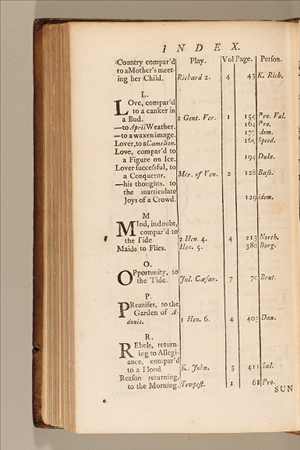 INDEX.
Country compar'd Play. Vol Page. Person.
to a Mother's meet-
ing her Child. Richard 2. 4 43 K. Rich.
L.
Love, compar'd
to a canker in
a Bud. 2 Gent. Ver. 1 154 Pro. Val.
—to April Weather. 164 Pro.
—to a waxen image. 177 idem.
Lover, to a Camelion. 164 Speed.
Love, compar'd to
a Figure on Ice. 194 Duke.
Lover successful, to
a Conqueror. Mer. of Ven. 2 128 Bass.
—his thoughts, to
the inarticulate
Joys of a Crowd. 129 idem.
M
MInd, in doubt,
compar'd to
the Tide 2 Hen. 4. 4 213 North.
Maids to Flies. Hen. 5. 380 Burg.
O.
OPportunity, to
the Tide. Jul. Cæsar. 7 70 Brut.
P.
PRomises, to the
Garden of A-
donis. 1 Hen. 6. 4 402 Dau.
R.
REbels, return-
ing to Allegi-
ance, compar'd
to a Flood K. John. 3 411 Sal.
Reason returning,
to the Morning. Tempest. 1 68 Pro.
SUN